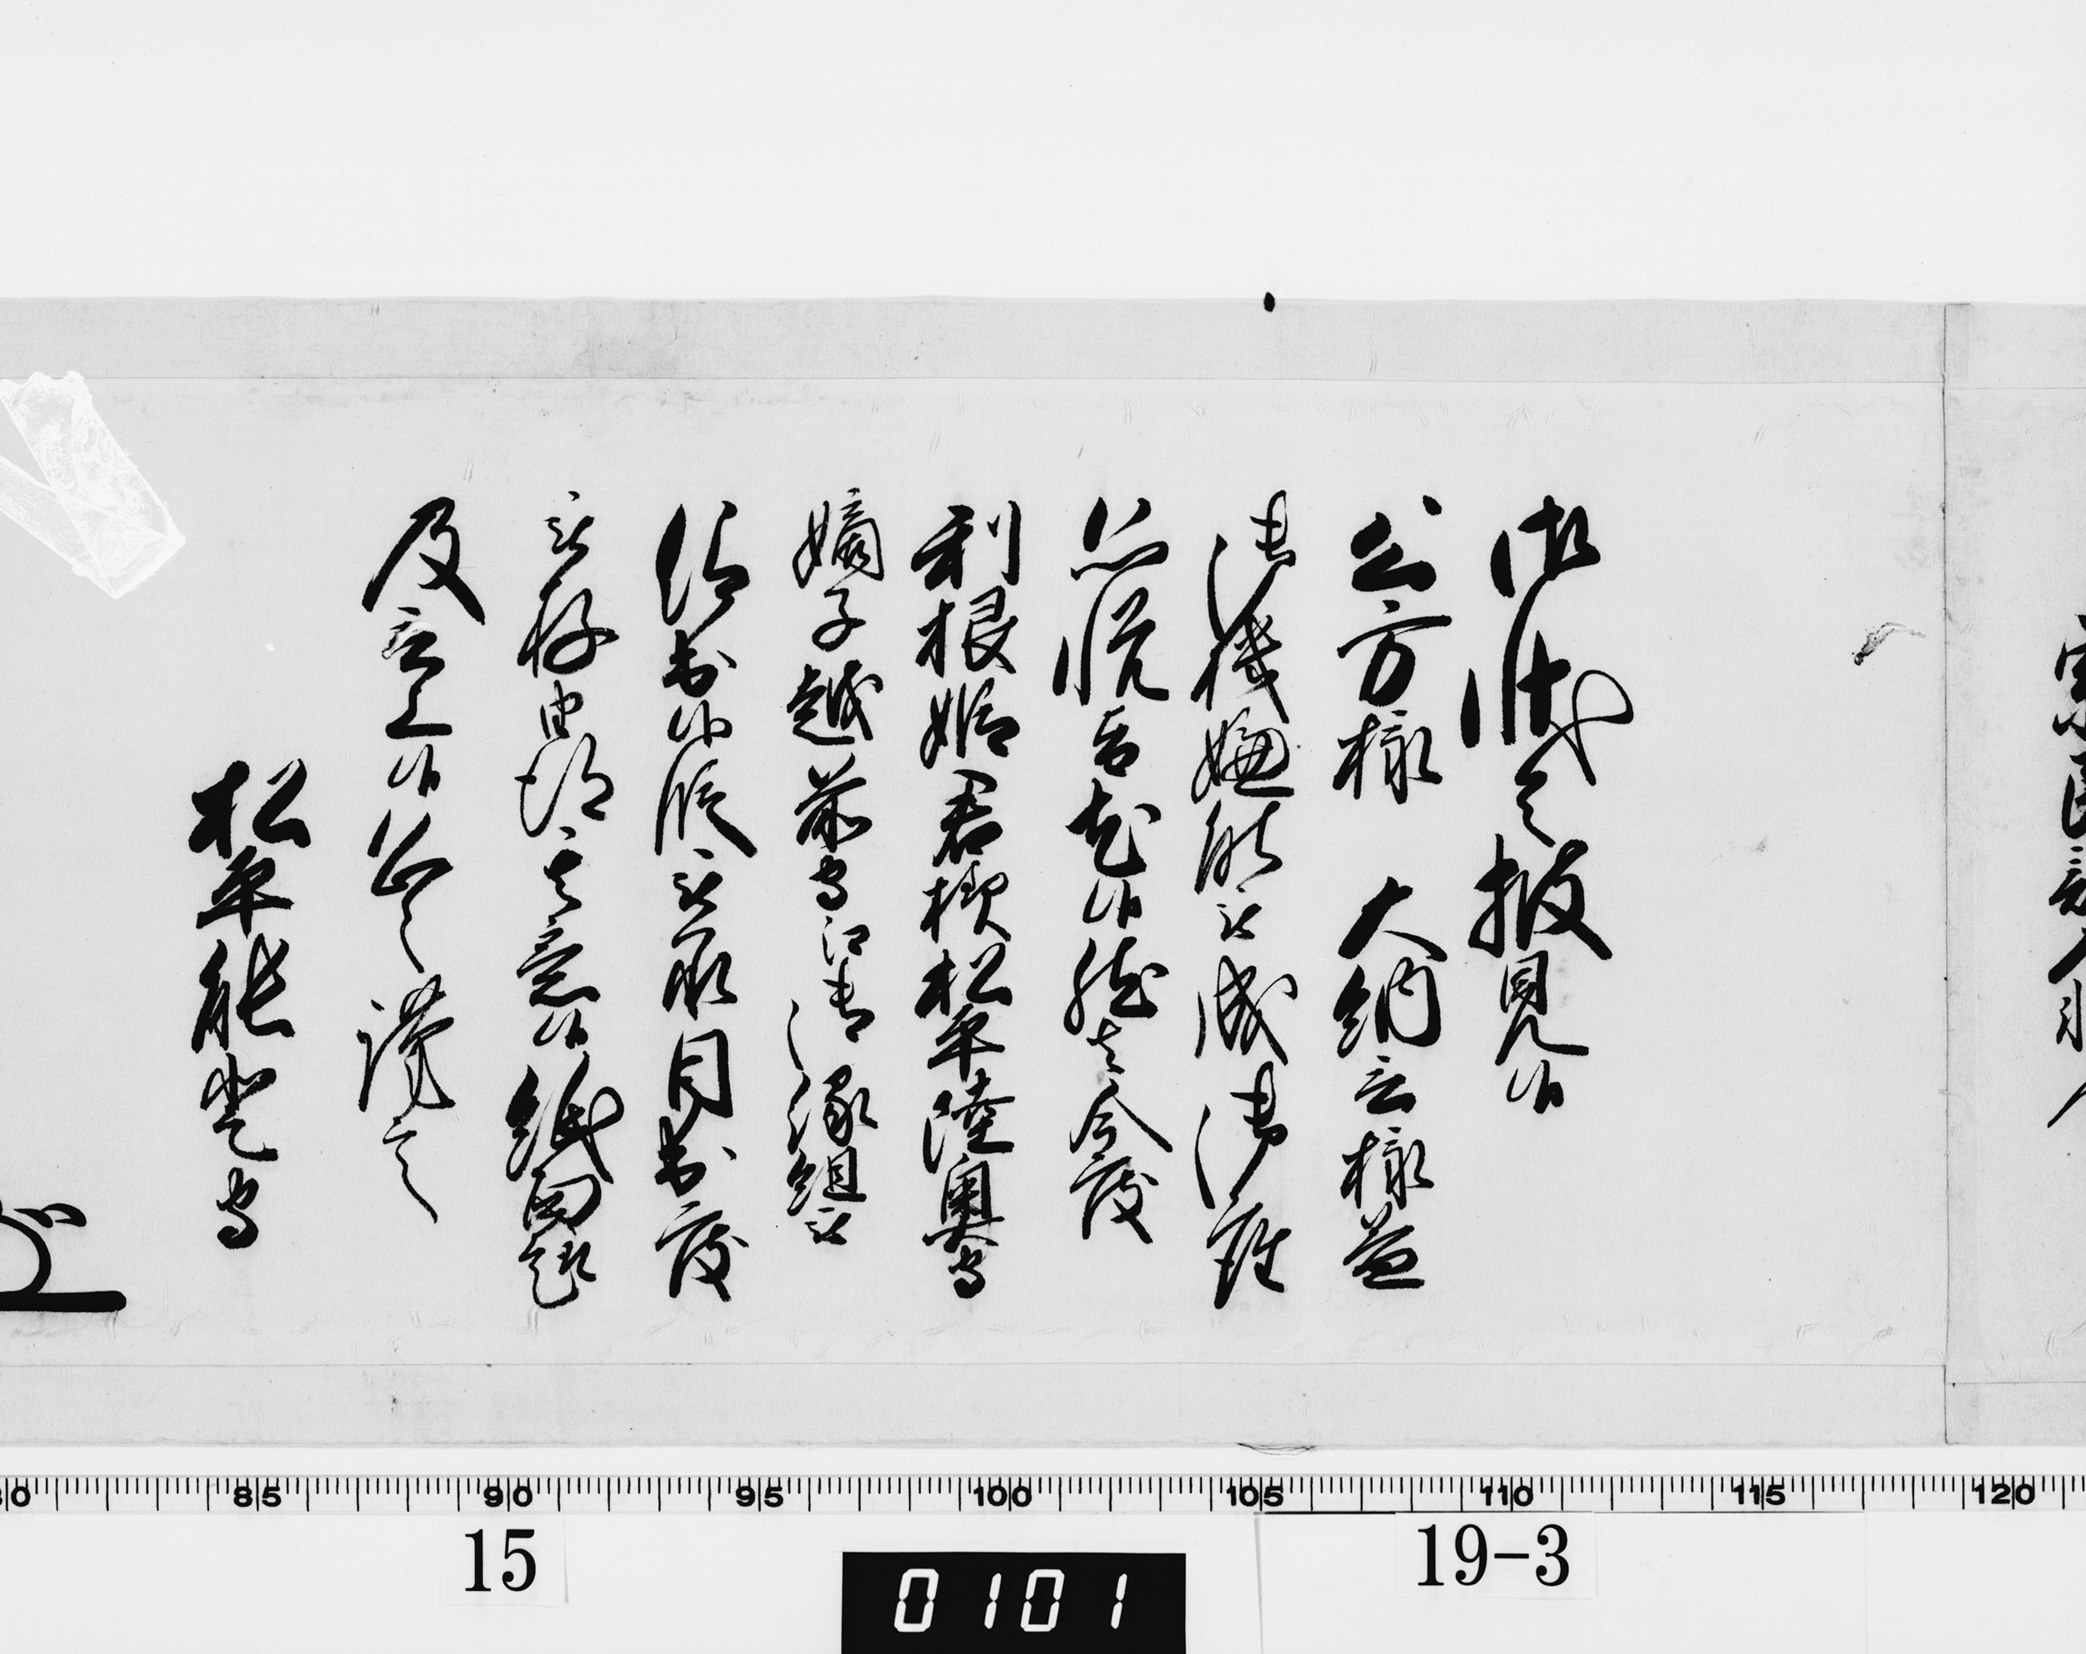 御状令披見候
公方様 大納言様益
御機嫌能被成御座
恐悦旨尤候然者今度
利根姫君様松平陸奥守
嫡子越前守江御縁組被
仰出候段被承目出度
被存由得其意候紙面趣
及言上候恐々謹言
松平能登守
80 85 90 95 100 105 110 115 120
15
19-3
0101